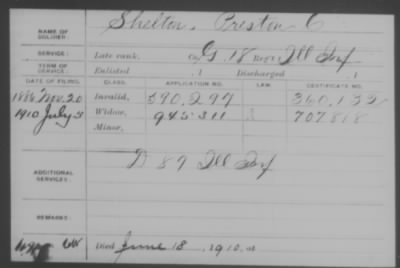 NAME OF SOLDIER: Shelton, Preston C
SERVICE: Late rank, Co. G, 18 Reg't Ill Inf
TERM OF SERVICE: Enlisted , 1 Discharged , 1
DATE OF FILING. CLASS. APPLICATION NO. CERTIFICATE NO.
1886 Nov. 20 Invalid, 590,297 360,132
1910 July 5 Widow, 945311 707,818
Minor,
ADDITIONAL SERVICES: D 89 Ill Inf
REMARKS:
Died June 18, 1910, at